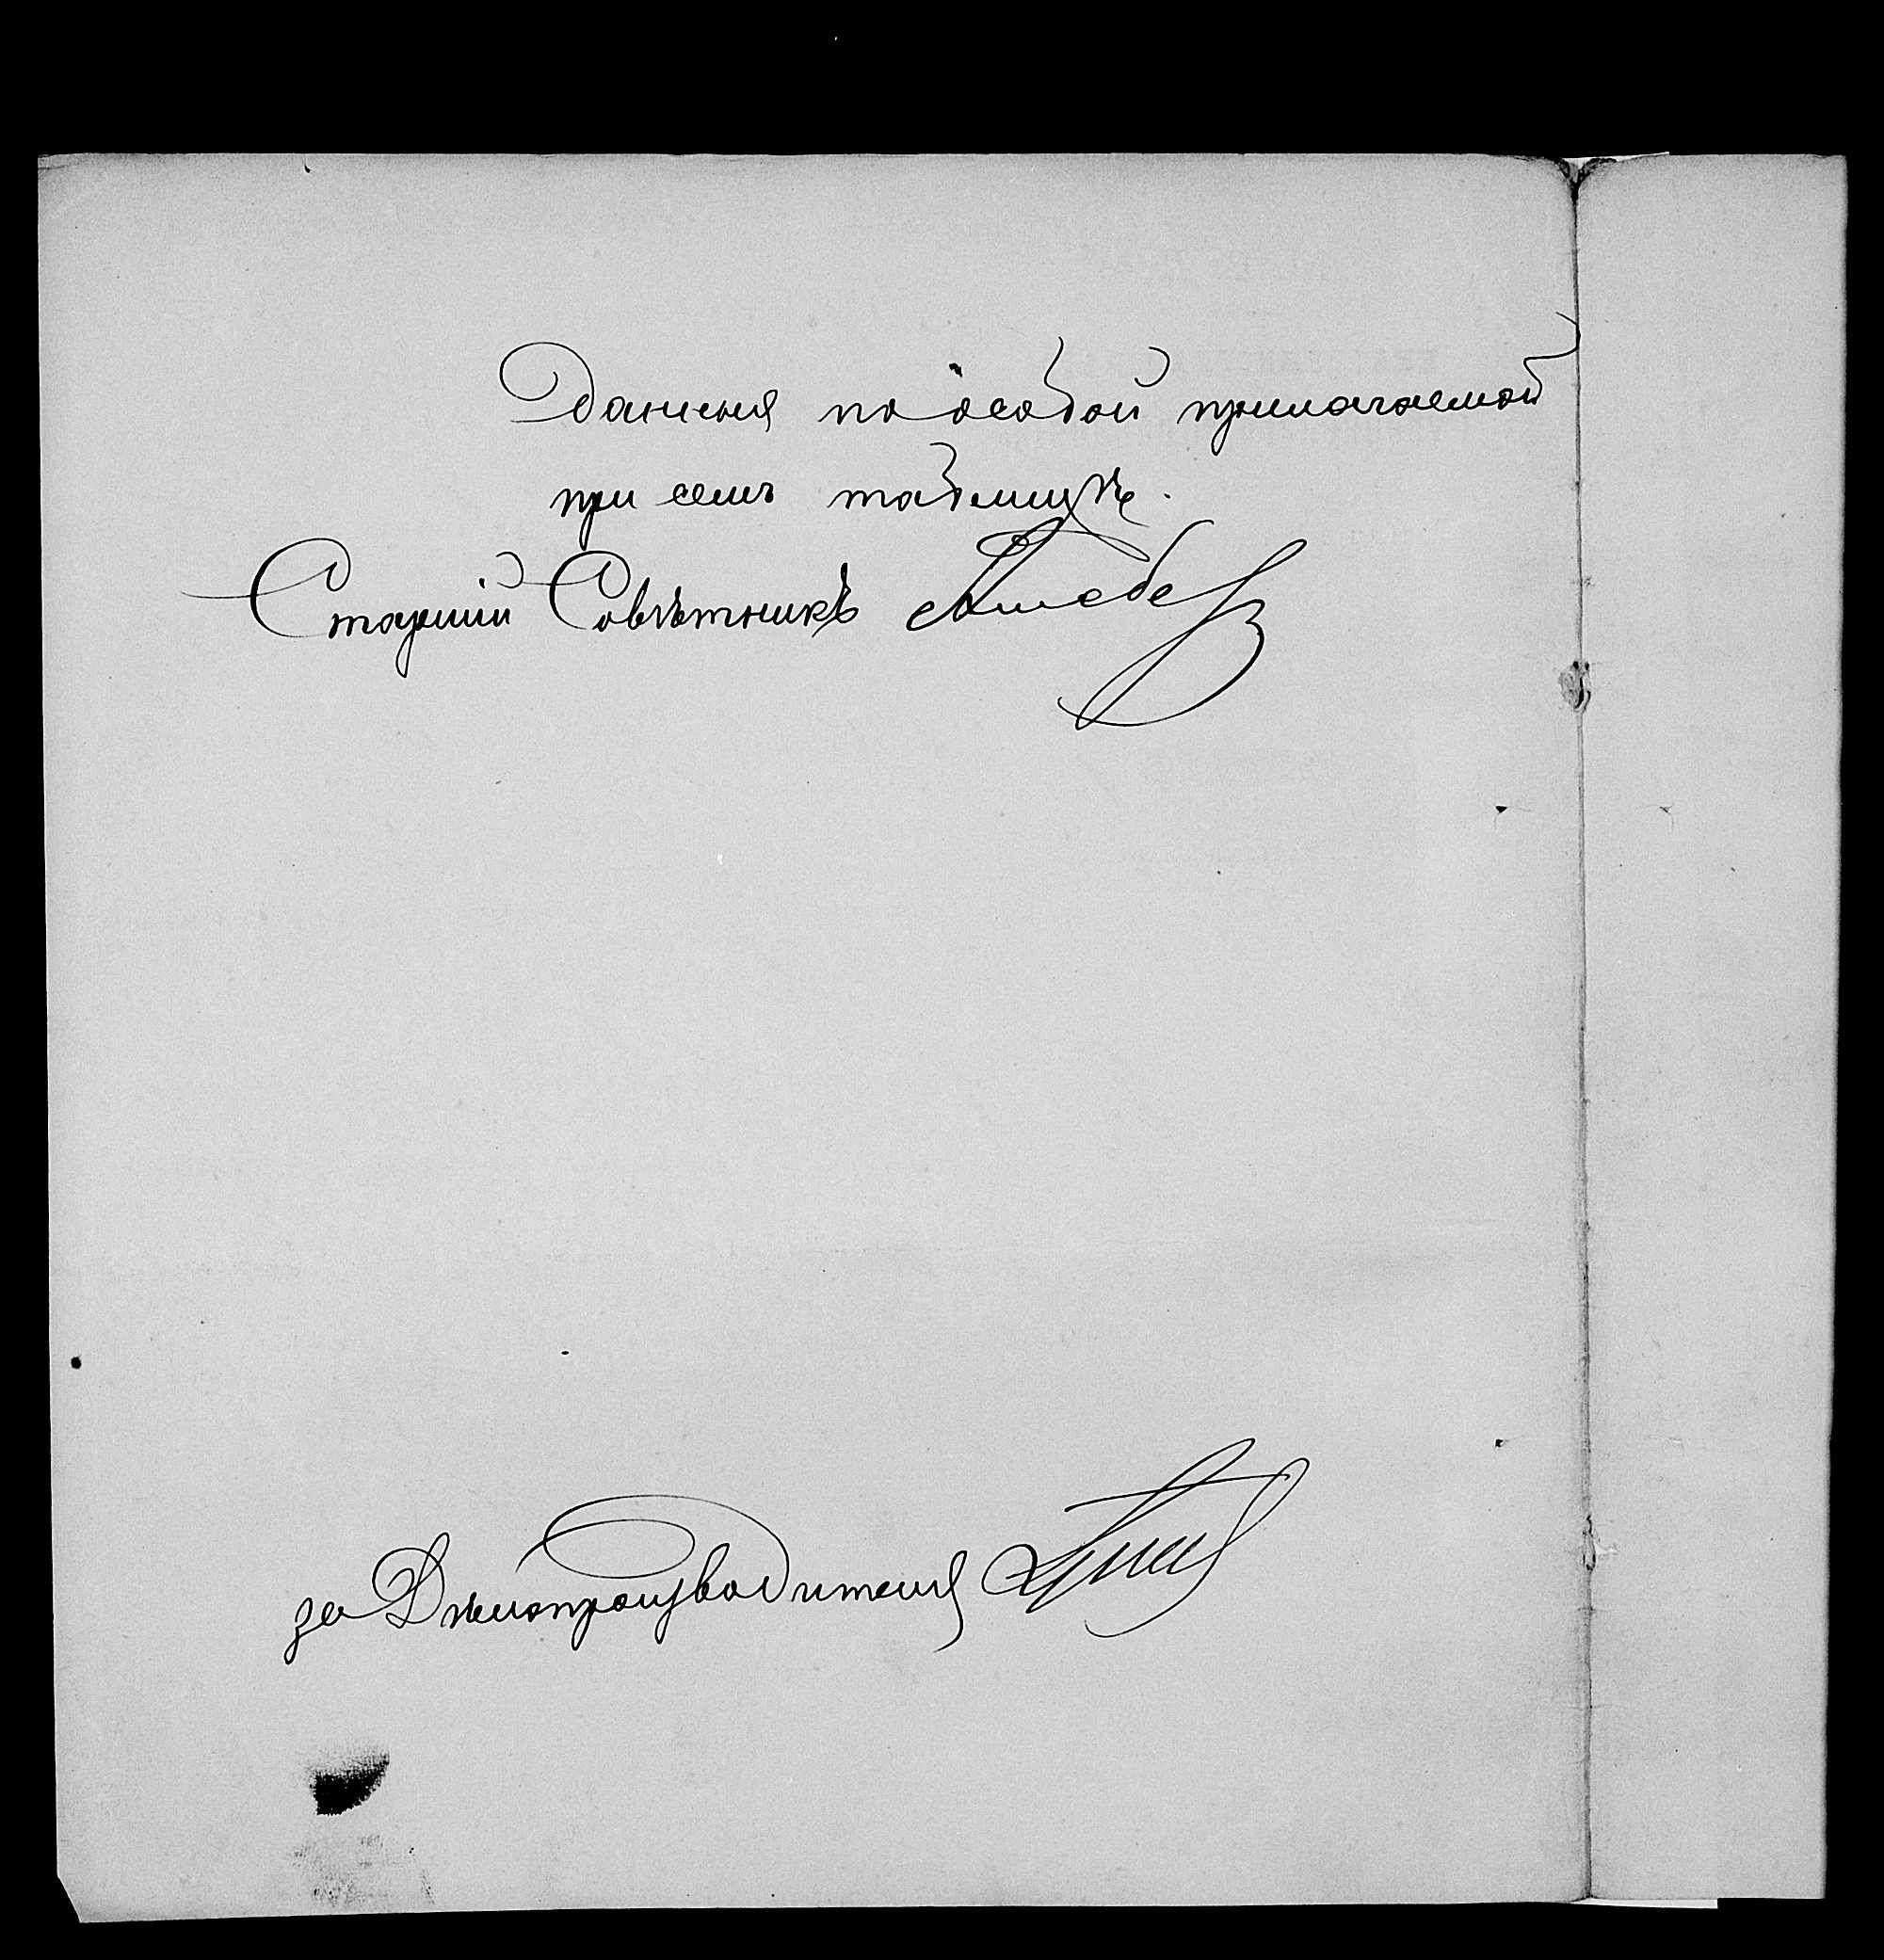 Данныя по особой прилагаемой
при семъ таблицѣ.
Старшій Совѣтникъ
за Дѣлопроизводителя